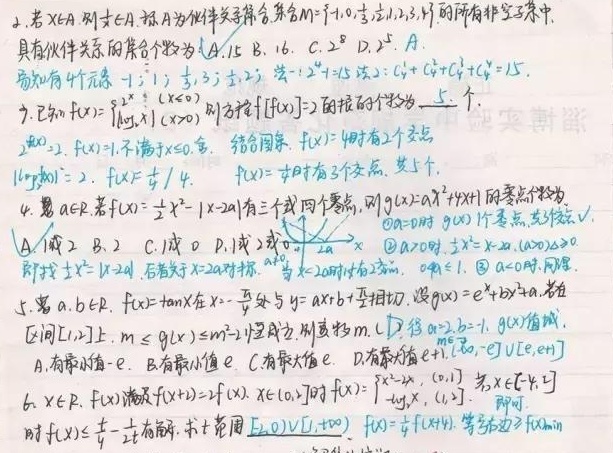 2. 若x∈A,则1/x∈A,称A为伙伴关系集合,集合M={-1,0,1/3,1/2,1,2,3,4}的所有非空子集中,
具有伙伴关系的集合个数为( A.15 B.16. C.2⁸ D.2⁵. A.
易知有4个元素 -1; 1; 1/3,3; 1/2,2; 法一:2⁴-1=15 法2:C₄¹+C₄²+C₄³+C₄⁴=15.
3.已知f(x)={2^x (x≤0) |log₂x| (x>0) 则方程f[f(x)]=2的根的个数为 5 个.
2^f(x)=2. f(x)=1.不满于x≤0.舍. 结合图象. f(x)=4时有2个交点
|log₂f(x)|=2. f(x)=1/4 / 4. f(x)=1/4时有3个交点. 共5个.
4. 若a∈R.若f(x)=1/2x²-|x-2a|有三个或四个零点,则g(x)=ax²+4x+1的零点个数为
A.1或2 B.2 C.1或0 D.1或2或0 2a x ①a=0时 g(x)1个零点,共3交点√.
即找1/2x²=|x-2a| 右者关于x=2a对称. ②a>0时. 1/2x²=x-2a.(a>0)△≥0.
③a<0时,同理.
5.若a.b∈R. f(x)=tanx在x=-π/4处与y=ax+b+π/2相切.设g(x)=e^x+bx²+a.若在
区间[1,2]上. m≤g(x)≤m²-2恒成立,则实数m.( D 得a=2,b=-1. g(x)值域.
A.有最小值-e. B.有最小值e C.有最大值e D.有最大值e+1. m∈(-∞,-e]∪[e,e+1]
6. x∈R. f(x)满足f(x+2)=2f(x). x∈(0,2]时f(x)={x²-2x, (0,1] -log₂x, (1,2]. 若x∈(-4,-2]
时f(x)≤t/4-1/2t有解.求t范围 [-2,0)∪[1,+∞) f(x)=1/4f(x+4). 等号右边≥f(x)min 即可.